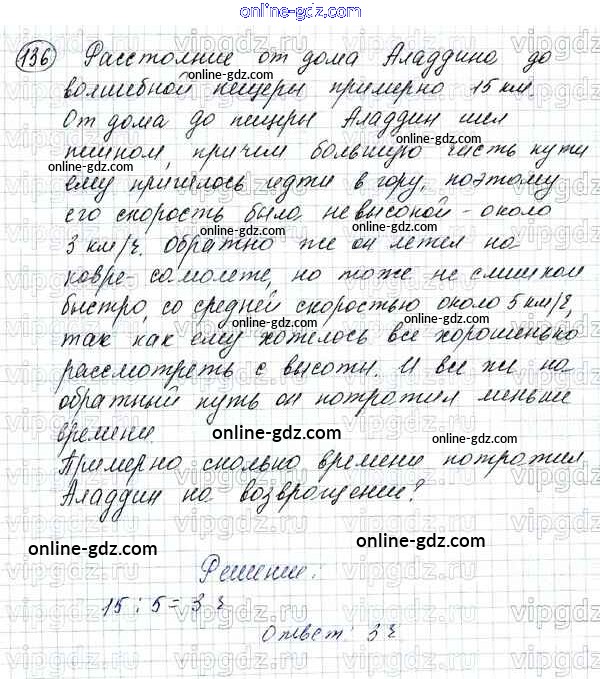 online-gdz.com
136 Расстояние от дома Аладдина до
волшебной пещеры примерно 15 км.
От дома до пещеры Аладдин шел
пешком, причем большую часть пути
ему пришлось идти в гору, поэтому
его скорость была невысокой - около
3 км/ч. Обратно же он летел на
ковре-самолете, но тоже не слишком
быстро, со средней скоростью около 5 км/ч,
так как ему хотелось все хорошенько
рассмотреть с высоты. И все же на
обратный путь он потратил меньше
времени
Примерно сколько времени потратил
Аладдин на возвращение?
online-gdz.com
Решение:
15 : 5 = 3 ч
Ответ: 3 ч